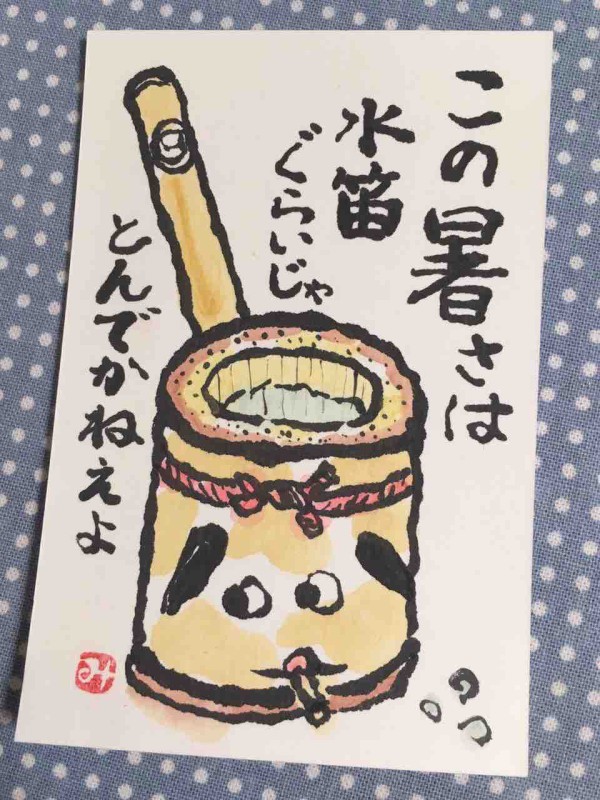 この暑さは
水笛
ぐらいじゃ
とんでかねえよ
み